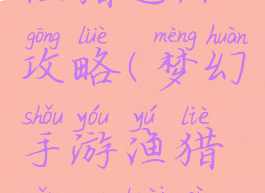 gōng lüè mèng huàn
攻略(梦幻
shǒu yóu yú liè
手游渔猎